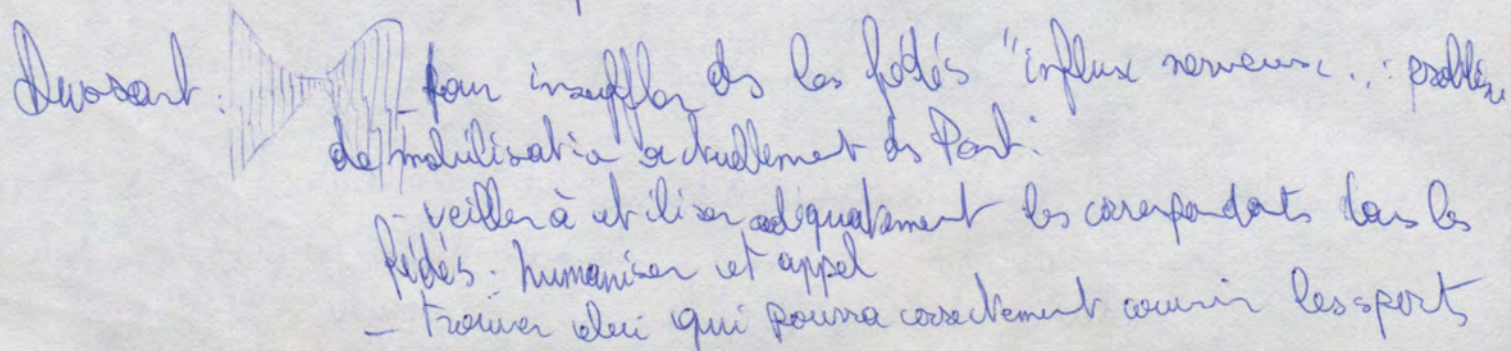 Dussart : - pour insuffler ds les fédés "influx nerveux.. : problème
de mobilisation actuellement ds Parti
- veiller à utiliser adéquatement les correspondants dans les
fédés : humaniser cet appel
- trouver celui qui pourra correctement couvrir les sports